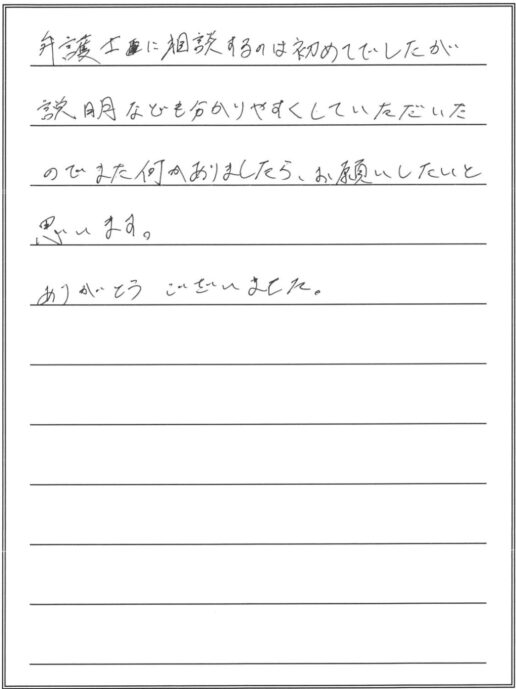 弁護士に相談するのは初めてでしたが
説明なども分かりやすくしていただいた
のでまた何かありましたら、お願いしたいと
思います。
ありがとうございました。